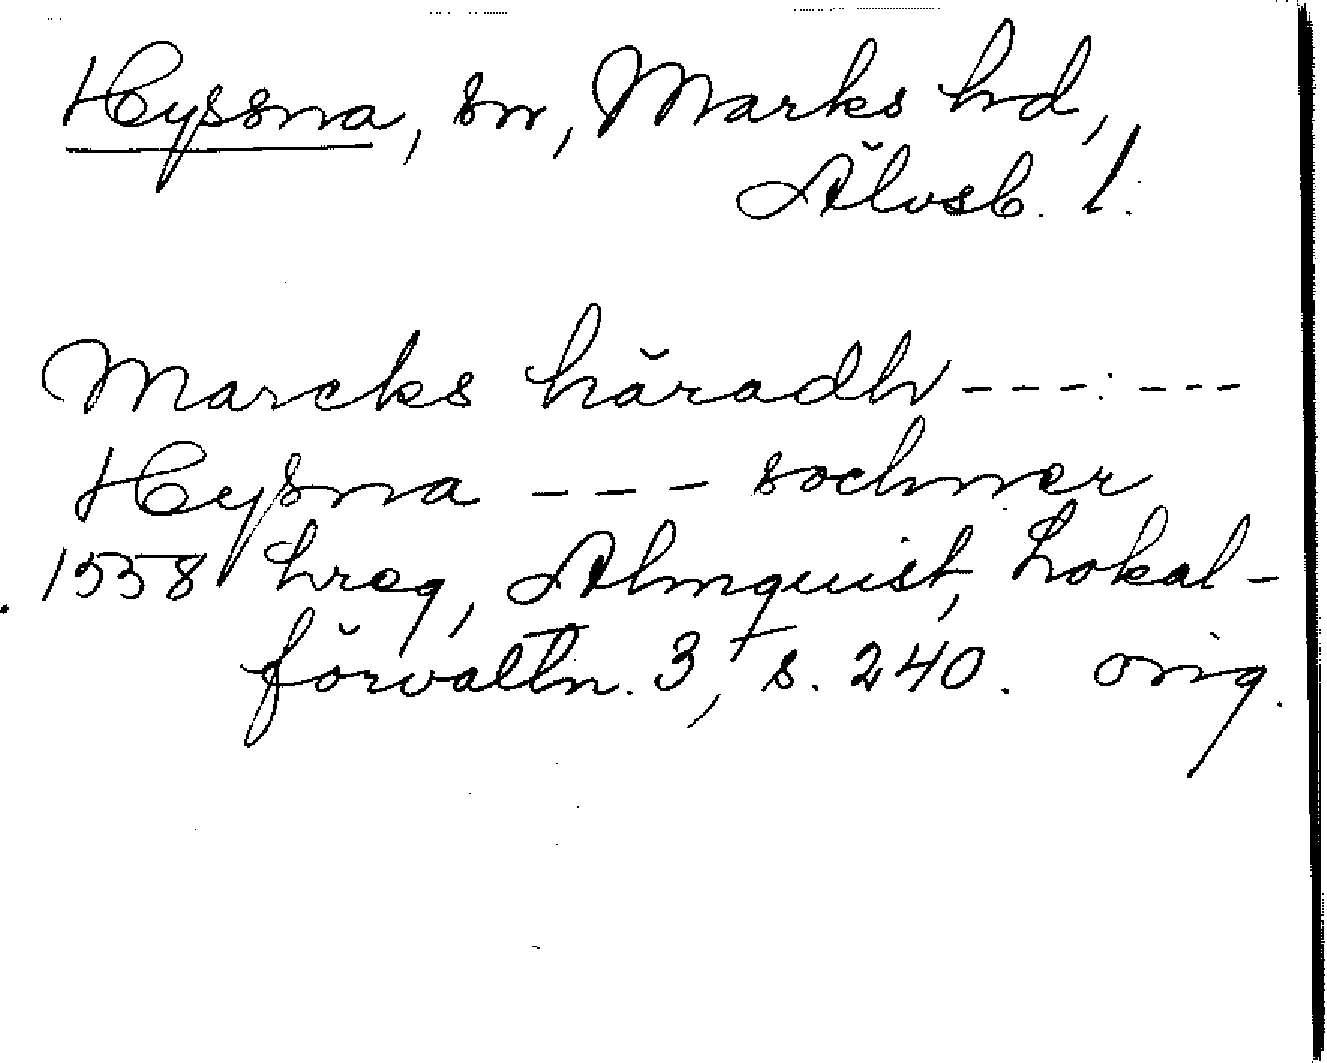 Hyssna, sn, Marks hd,
Älvsb. l.
Marcks häradh --- : ---
Hysna --- sochner
1558 hreg, Almquist, Lokal-
förvaltn. 3, s. 240. orig.